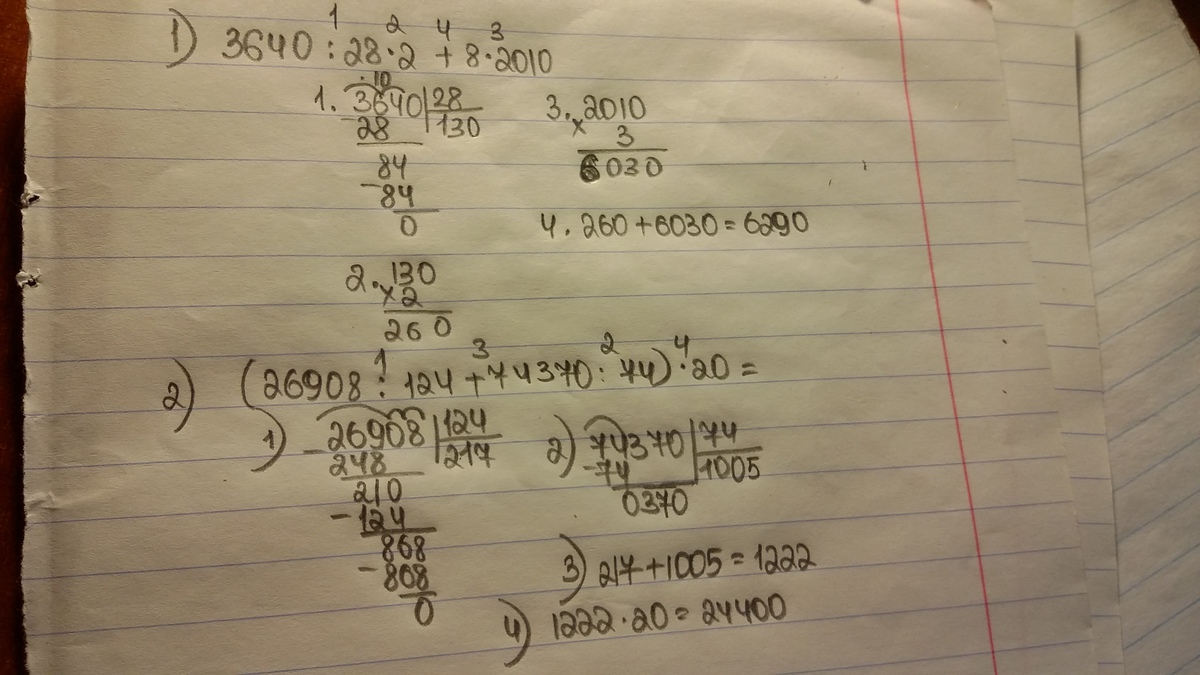 1) 3640 : 28 · 2 + 8 · 2010
1 2 4 3
1. 3640 | 28
28 130
84
- 84
0
3. 2010
x 3
6030
4. 260 + 6030 = 6290
2. 130
x 2
260
2) (26908 : 124 + 74370 : 74) · 20 =
1 3 2 4
1) - 26908 | 124
248 217
210
- 124
868
- 868
0
2) 74370 | 74
- 74 1005
0370
3) 217 + 1005 = 1222
4) 1222 · 20 = 24400